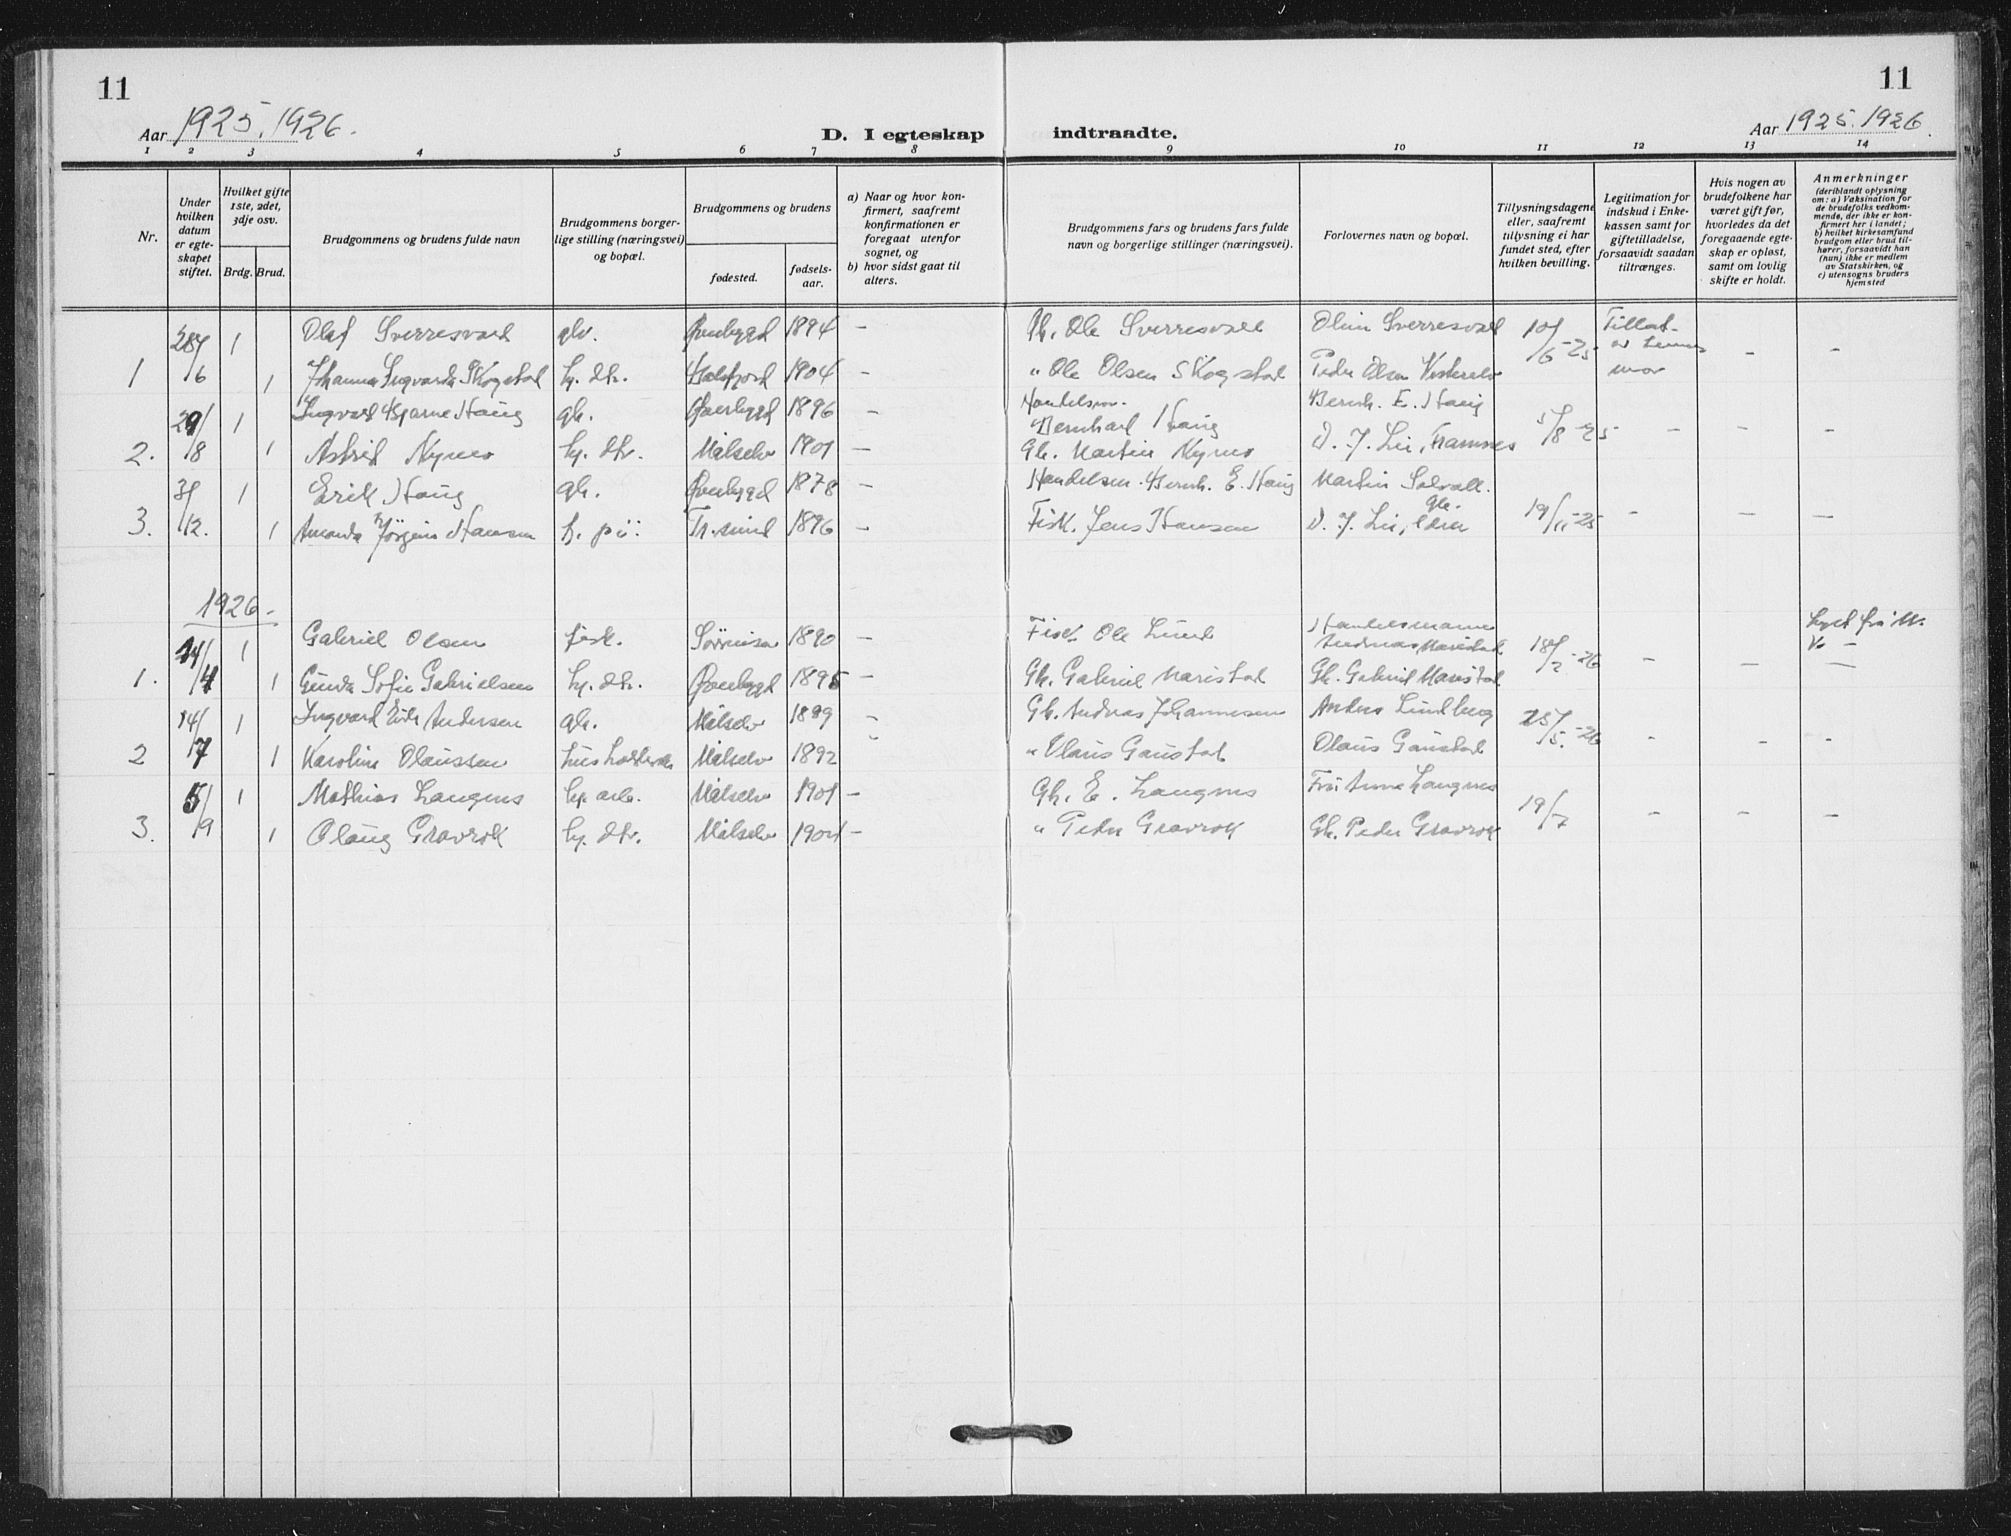 11
11
Aar 1925. 1926.
D. I egteskap indtraadte.
Aar 1925. 1926.
1 2 3 4 5 6 7 8 9 10 11 12 13 14
Nr.
Under hvilken datum er egteskapet stiftet.
Hvilket gifte 1ste, 2det, 3dje osv.
Brdg. Brud.
Brudgommens og brudens fulde navn
Brudgommens borgerlige stilling (næringsvei) og bopæl.
Brudgommens og brudens
fødested.
fødselsaar.
a) Naar og hvor konfirmert, saafremt konfirmationen er foregaat utenfor sognet, og
b) hvor sidst gaat til alters.
Brudgommens fars og brudens fars fulde navn og borgerlige stillinger (næringsvei).
Forlovernes navn og bopæl.
Tillysningsdagene eller, saafremt tillysning ei har fundet sted, efter hvilken bevilling.
Legitimation for indskud i Enkekassen samt for giftetilladelse, forsaavidt saadan tiltrænges.
Hvis nogen av brudefolkene har været gift før, hvorledes da det foregaaende egteskap er opløst, samt om lovlig skifte er holdt.
Anmerkninger
(deriblandt oplysning om: a) Vaksination for de brudefolks vedkommende, der ikke er konfirmert her i landet;
b) hvilket kirkesamfund brudgom eller brud tilhører, forsaavidt han (hun) ikke er medlem av Statskirken, og
c) utensogns bruders hjemsted
28/6 1 Olaf Sverresvold Øverbygd 1894 – Ole Sverresvold Sverresvold 10/6-25
1 1 Johanna Ingvarda Skogstad hj. dtr. Balsfjord 1904 – " Ole Olsen Skogstad Peder Olsen – –
29/8 1 Ingvard Bjarne Haug gb. Øverbygd 1896 – Handelsm. Bernhard Haug Bernh. E. Haug 5/8-25
2. 1 Astrid Nymo hj. dtr. Målselv 1901 – Gb. Martin Nymo O. J. Li, Framnes – – –
31/12. 1 Erik Haug gb. Øverbygd 1878 – Handelsm. Bernh. E. Haug Martin Solvoll. gb. 19/11-25
3. 1 Amanda Jørgine Hansen h. pi. 1896 – Fisk. Jens Hansen O. J. Li, – – –
1926.
14/4 1 Gabriel Olsen fisk. Sørreisa 1890 – Fisk. Ole Lund Handelsmann Andreas Maristad 18/2-26
1. 1 Gunda Sofie Gabrielsen hj. dtr. Øverbygd 1895 – Gb. Gabriel Maristad Gb. Gabriel Maristad – – –
14/7 1 Ingvard Erik Andersen gb. Målselv 1889 – Gb. Andreas Johannesen Anders Lundberg 25/5-26
2 1 Karoline Olaussen Målselv 1892 " Olaus Gaustad Olaus Gaustad – – –
5/9 1 Mathias Langnes hj. arb. Målselv 1901 – Gb. E. Langnes Fru Anna Langnes 19/7
3. 1 Olaug Gravrok hj. dtr. Målselv 1904 – " Peder Gravrok Gb. Peder Gravrok – – –